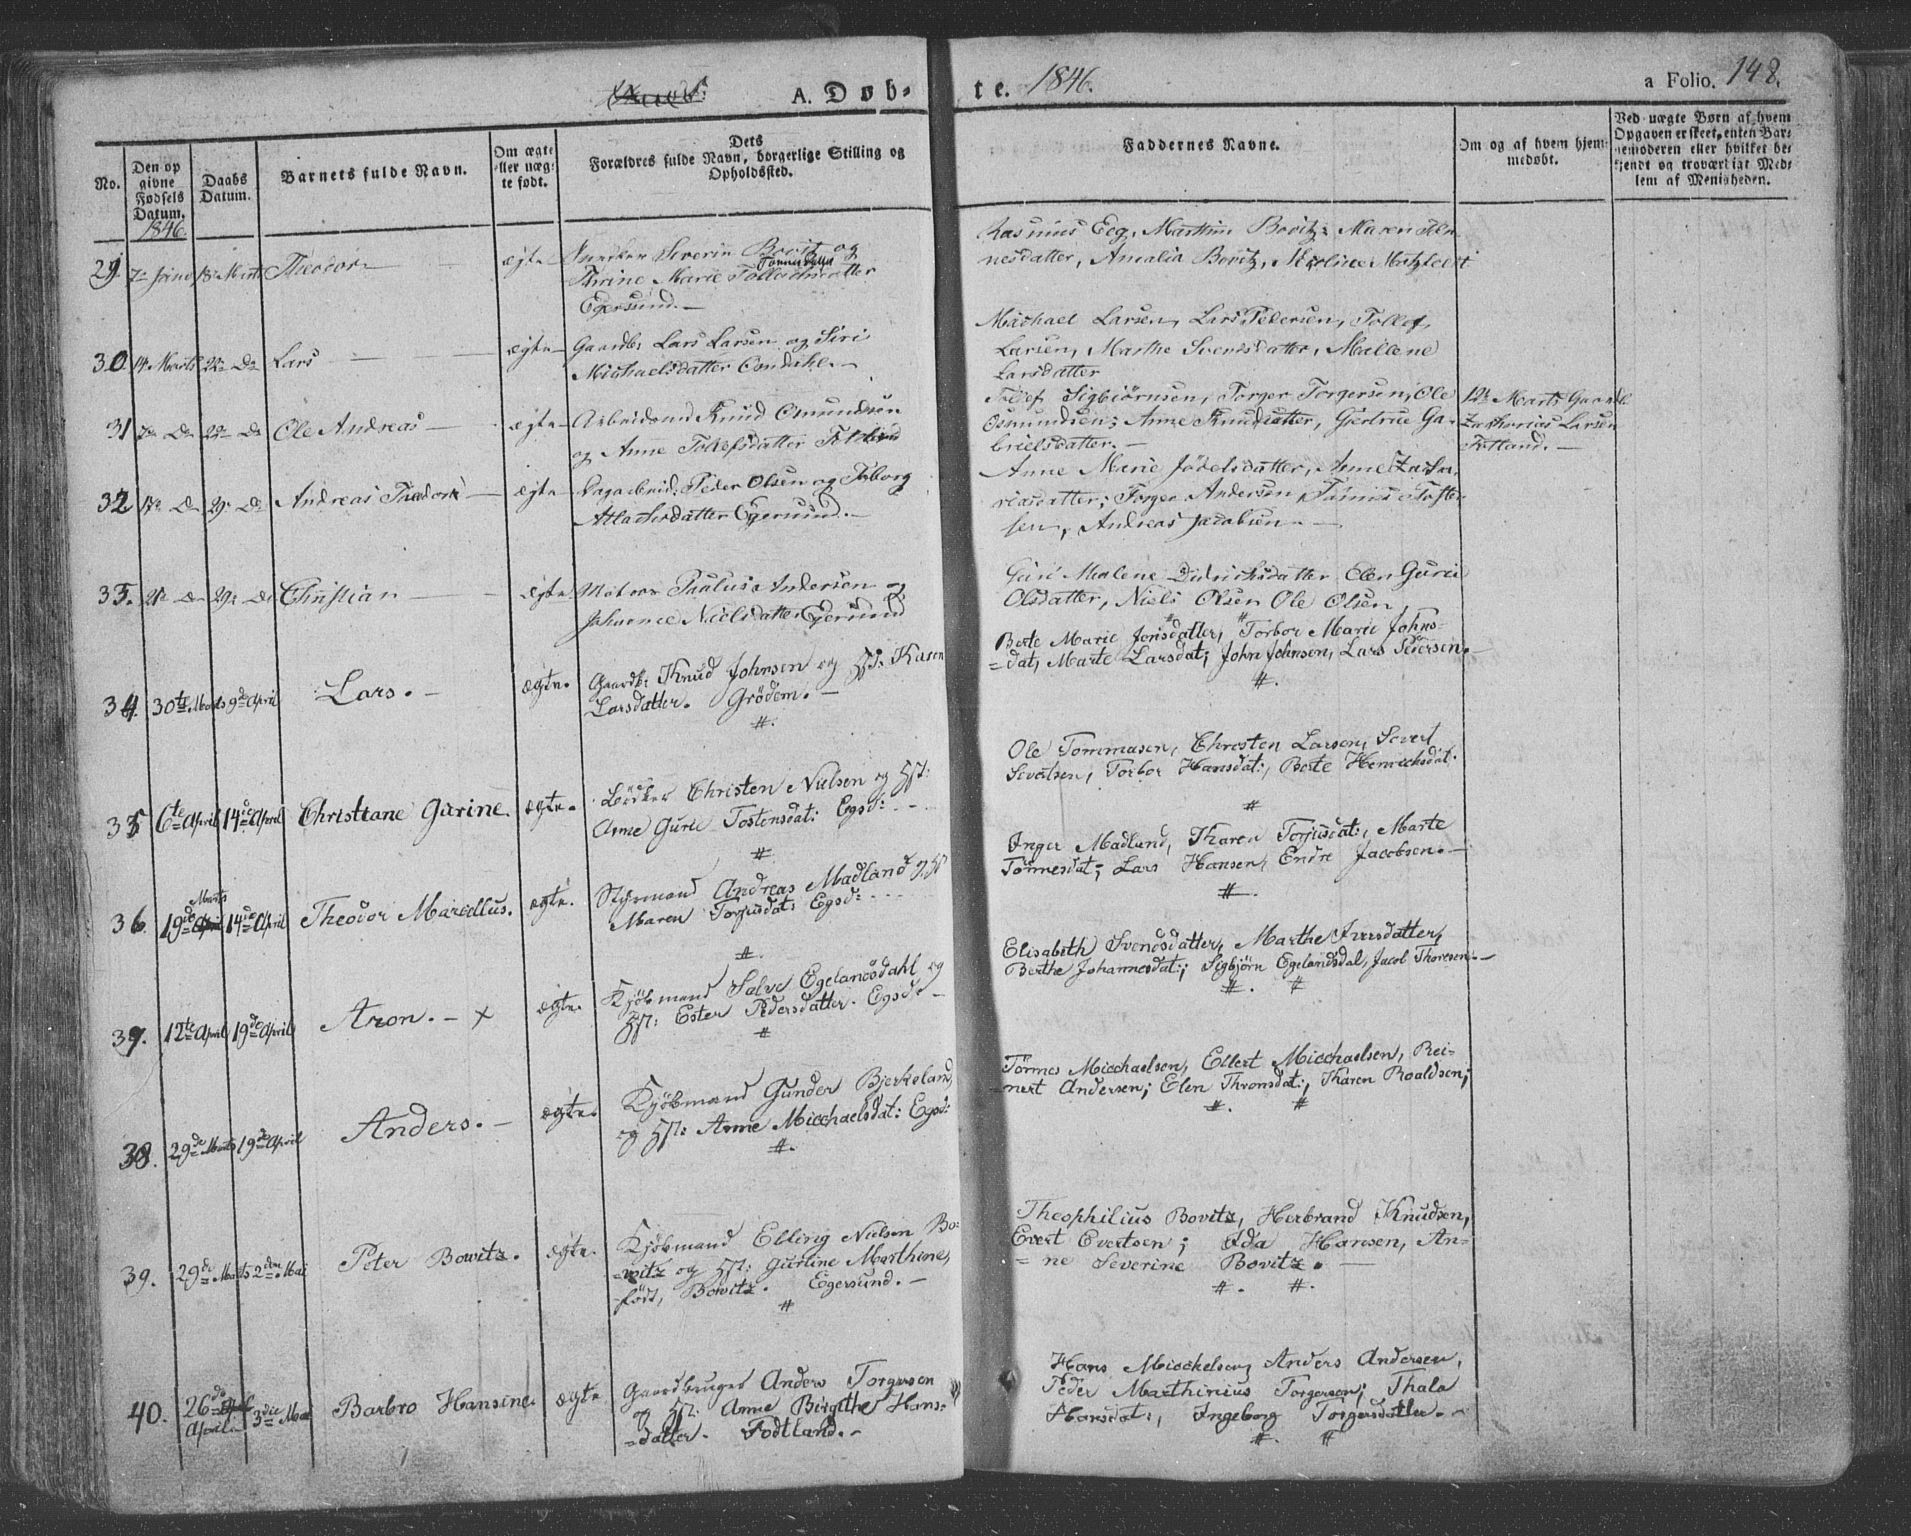 A. Døb-te. 1846. a Folio. 148.
No.
Den opgivne Fødsels Datum.
1846.
Daabs Datum.
Barnets fulde Navn.
Om ægte eller uægte født.
Dets Forældres fulde Navn, borgerlige Stilling og Opholdssted.
Faddernes Navne.
Om og af hvem hjemmedøbt.
Ved uægte Børn af hvem Opgaven er skeet, enten Barnemoderen eller hvilket bekjendt og troværdigt Medlem af Menigheden.
29. 18 Marts Theodor — ægte
Snedker Severin Bovitz og
Thrine Marie Tønnesdatter
Egersund. —
Rasmus Eeg, Marthin Bovitz, Maren
nesdatter, Amalia Bovitz,
30. 14 Marts 22 Do Lars — ægte
Gaardb: Lars Larsen og Siri
Michaelsdatter —
Michael Larsen, Lars Pedersen, Tollef
Larsen, Marthe Svendsdatter, Mallene
Larsdatter
31 7de Do 22 Do Ole Andreas — ægte
Arbeidsmd Knud Osmundsen
og Anne Tollefsdatter Fotland
Tollef Sigbiørnsen, Torger Torgersen, Ole
Osmundsen; Anne Knudsdatter, Gjertrue Ga-
brielsdatter. —
12 Marts Gaardb:
Zacharias Larsen
Fotland. —
32 Do 29 Do Andreas Theodor — ægte
Dagarbeid: Peder Olsen og Toborg
Atlachsdatter Egersund. —
Anne Marie Jødelsdatter, Anne Zacha-
riasdatter; Torger Andersen, Tønnes Toste
sen, Andreas Jacobsen. —
33. 21 Do 29 Do Christian — ægte
Matros Paulus Andersen og
Johanne Nielsdatter Egersund
Guri Malene Didrichsdatter Elen Gurie
Olsdatter, Niels Olsen Ole Olsen
34. 30te Marts 9de April Lars. — ægte.
Gaardb: Knud Johnsen og Hst: Karen
Larsdatter. Grødem. —
#.
Berte Marie Jonsdatter, Torbor Marie Johns-
=dat, Marte Larsdat; John Johnsen, Lars Pedersen. —
#.
35 6te April 14de April Christiane Gurine. ægte.
Bødker Christen Nielsen og Hst:
Anne Gurie Tostensdat: Egsd:
#
Ole Tommasen, Christen Larsen, Severt
Severtsen, Torbor Hansdat:, Berte Henrichsdat:
#
36. 19de Marts 14de April Theodor Marcellus. ægte.
Styrmand Andreas Madland og Hst
Maren Torjusdat: Egsd:
#.
Inger Madland, Karen Torjusdat:, Marte
Tønnesdat; Lars Hansen, Endre Jacobsen. —
#.
37. 12te April 19de April Aron. — x ægte.
Kjøbmand Salve Egelandsdahl og
Hst: Ester Pedersdatter. Egsd: —
#
Elisabeth Svendsdatter, Marthe Iversdatter,
Berthe Johannesdat:; Sigbjørn Egelandsdal, Jacob Thoresen. —
#. #
38. 29de Marts 19de April Anders. — ægte.
Kjøbmand Gunder Bjerkeland
og Hst: Anne Micchaelsdat: Egsd:
#.
Tønnes Micchaelsen, Ellert Micchaelsen, Rei-
=nert Andersen; Elen Thronsdat:, Karen Roaldsen;
#. #
39. 29de Marts 2den Mai Peter Bowitz. ægte.
Kjøbmand Elling Nielsen Bo-
=witz og Hst: Gurine Marthine,
født, Bowitz. Egersund. —
#
Theophilius Bovitz, Herbrand Knudsen,
Evert Evertsen; Ida Hansen, An-
=ne Severine Bovitz. —
#. #.
40. 26de April 3die Mai Barbro Hansine. ægte
Gaardbruger Anders Torgersen
og Hst: Anne Birgithe Hans-
=datter. Fodtland. —
Hans Micchelsen, Anders Andersen,
Peder Marthinius Torgersen; Thala
Hansdat:, Ingeborg Torgersdatter. —
#. #